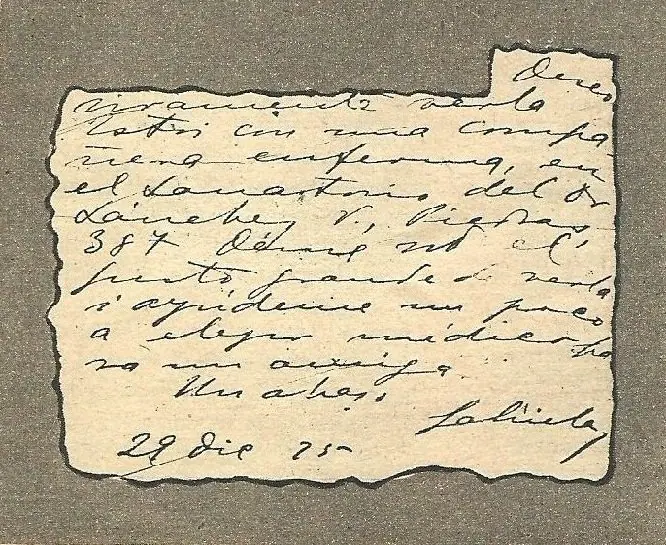 Deseo
vivamente verla
Estoi con una compa-
ñera enferma, en
el Sanatorio del Dr
Sánchez V., Piedras,
387 Déme Ud el
gusto grande d verla
i ayúdeme un poco
a elejir médico pa
ra mi amiga
Un abrazo
29 Dic 25